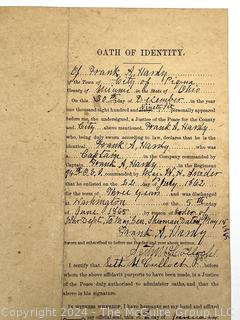 OATH OF IDENTITY.
Of Frank A. Hardy
of the Town of City of Piqua
County of Miami in the State of Ohio
On this 30th day of December in the year
one thousand eight hundred and Ninety Six personally appeared
before me, the undersigned, a Justice of the Peace for the County
and City above mentioned, Frank A. Hardy
who, being duly sworn according to law, declares that he is the
identical Frank A. Hardy who was
a Captain in the Company commanded by
Captain Frank A. Hardy in the Regiment
94th O.V.I. commanded by
that he enlisted on the 22 day of July 1862
for the term of Three years and was discharged at
Washington on the 5th day
of June 1865 by reason of
War Dept.
Frank A. Hardy
Sworn and subscribed to before me the day and year above written.
I certify that Seth McCullock, J.P.
before whom the above affidavit purports to have been made, is a Justice
of the Peace duly authorized to administer oaths, and that the
above is his signature.
IN WITNESS WHEREOF, I have hereunto set my hand and affixed
Copyright © 2024 - The Photo Journal